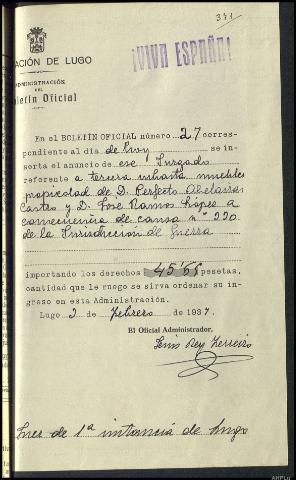 341
¡VIVA ESPAÑA!
ACIÓN DE LUGO
ADMINISTRACIÓN
DEL
oletín Oficial
En el BOLETÍN OFICIAL número 27 corres-
pondiente al día de hoy se in-
serta el anuncio de ese Juzgado
referente a tercera subasta muebles
propiedad de D. Perfecto Abelairas
Castro y D. José Ramos López a
consecuencia de causa nº 220
de la Jurisdicción de Guerra
importando los derechos 45'68 pesetas,
cantidad que le ruego se sirva ordenar su in-
greso en esta Administración.
Lugo 3 de Febrero de 1937
El Oficial Administrador,
Rey Ferreiro
Juez de 1ª instancia de Lugo
AHPLU